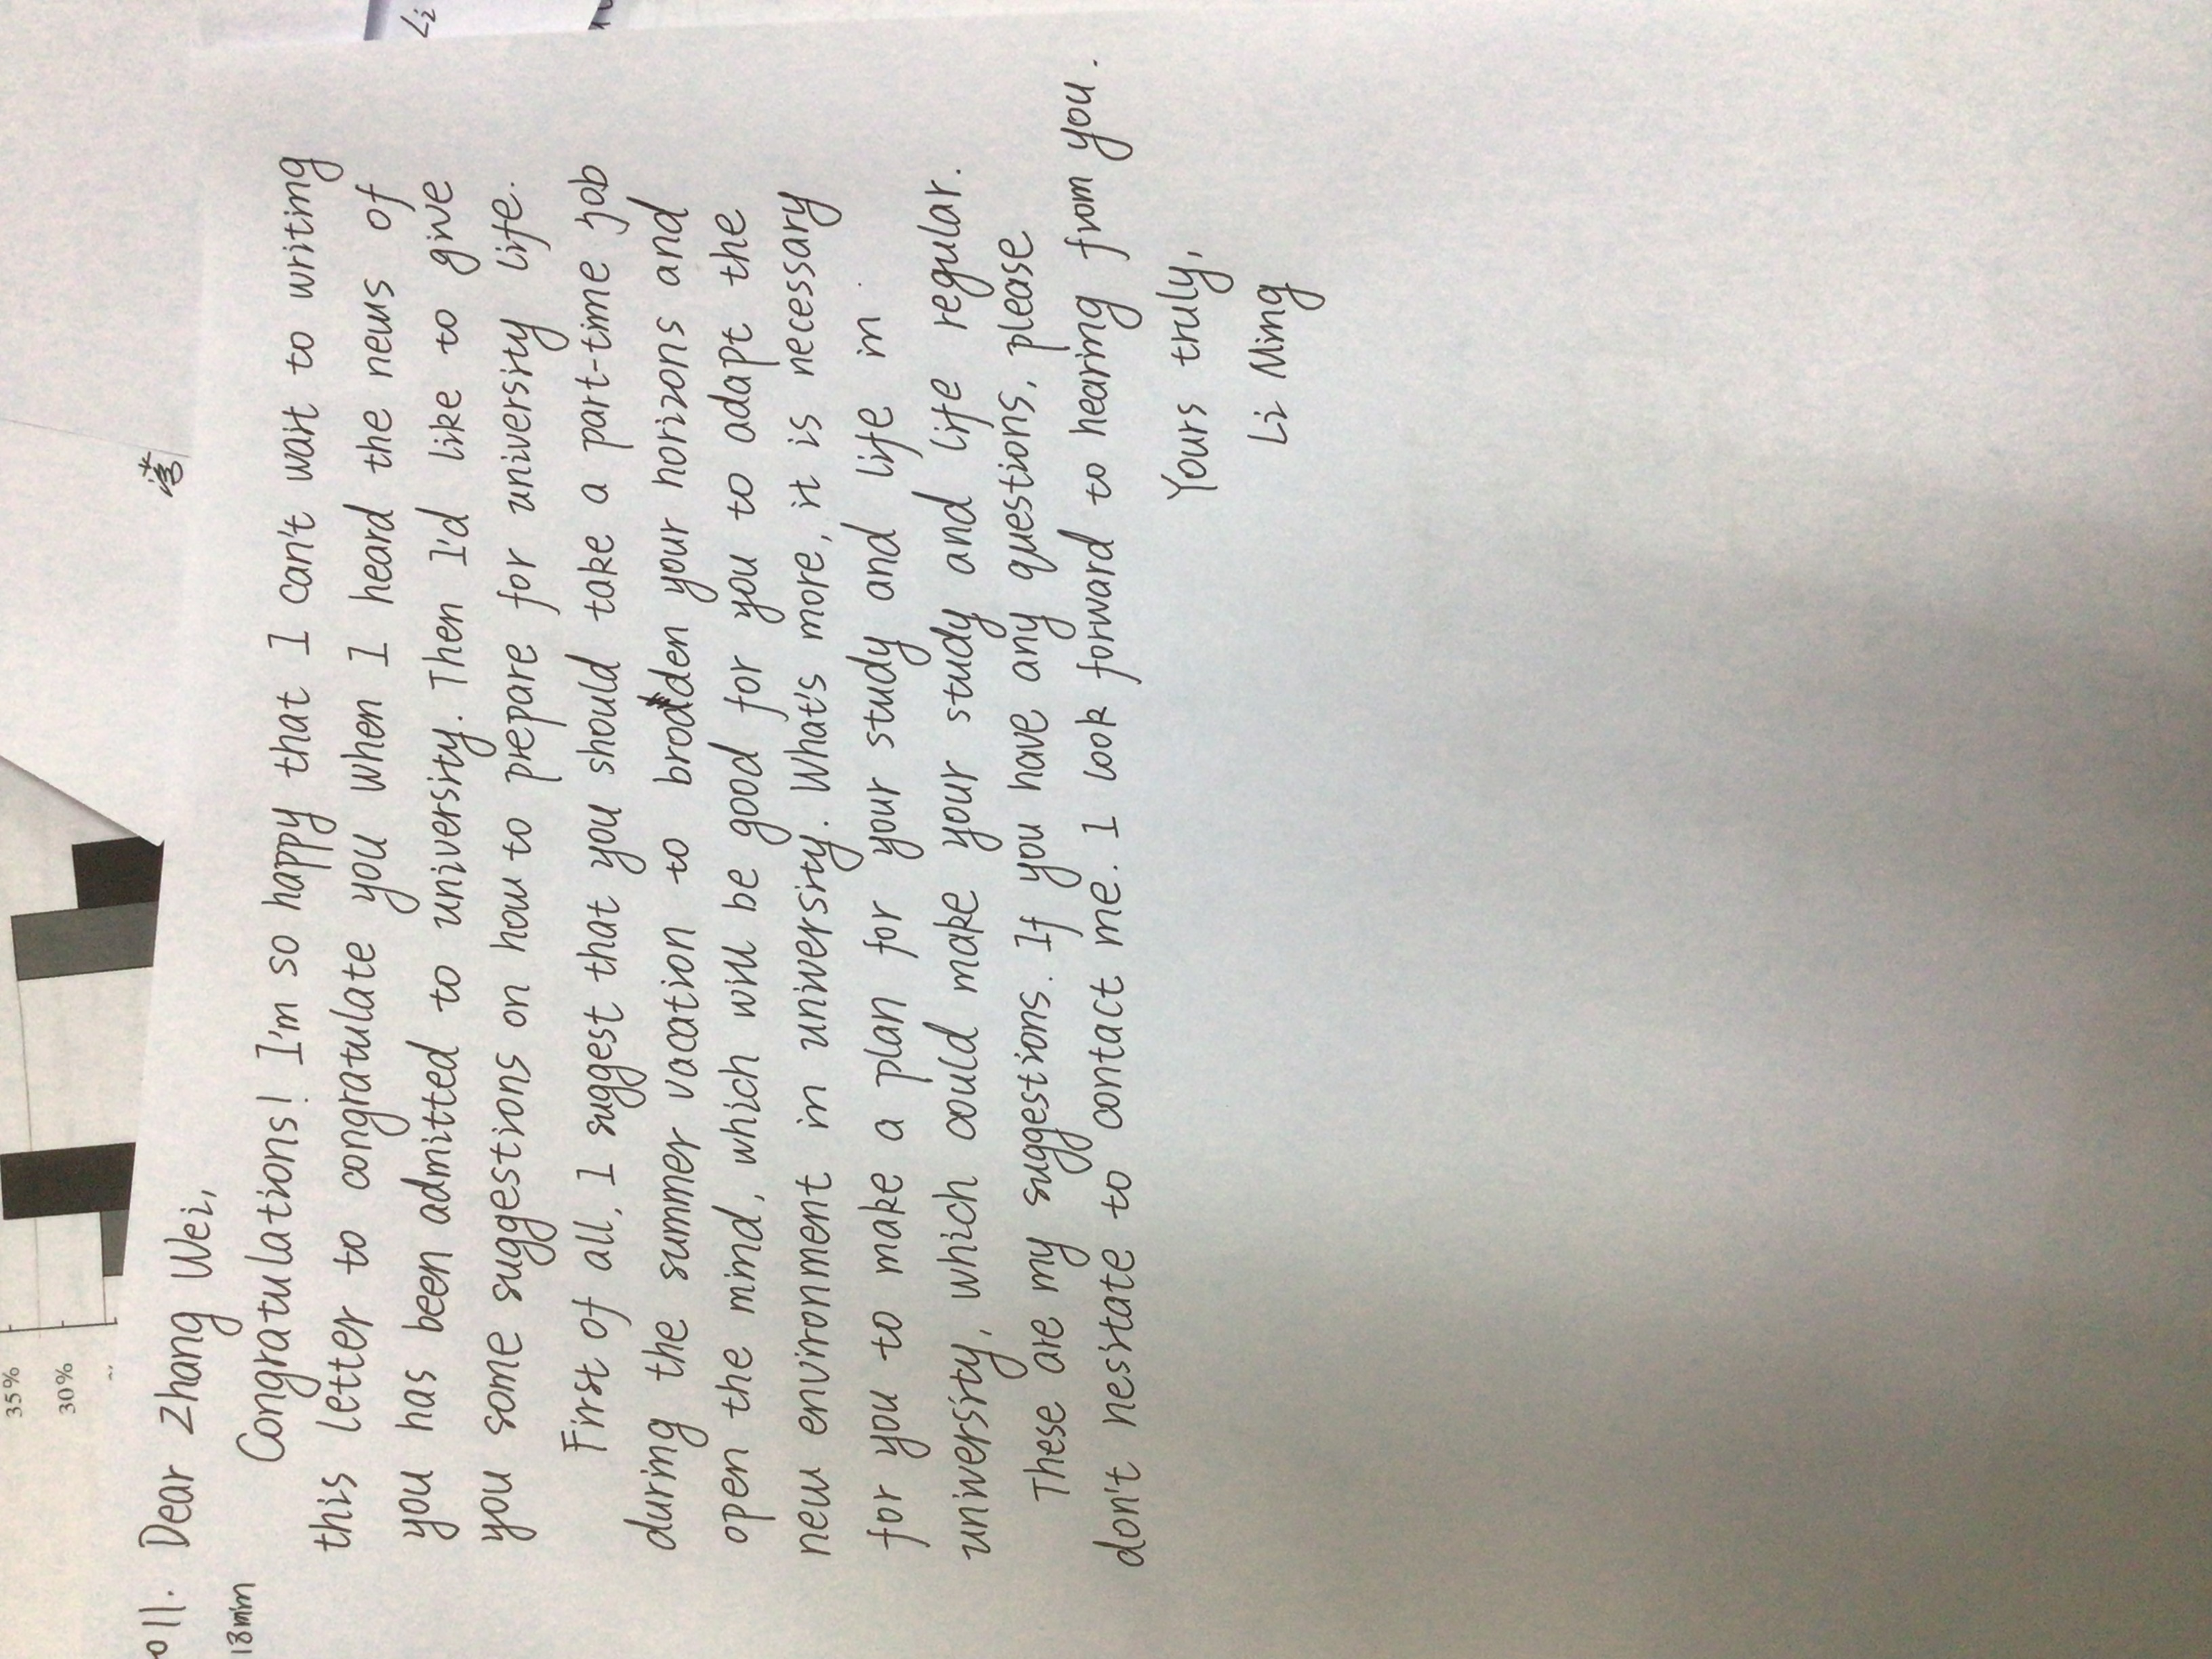 35%
30%
Li
011. Dear Zhang Wei,
18min
Congratulations! I'm so happy that I can't wait to writing
this letter to congratulate you when I heard the news of
you has been admitted to university. Then I'd like to give
you some suggestions on how to prepare for university life.
First of all, I suggest that you should take a part-time job
during the summer vacation to broaden your horizons and
open the mind, which will be good for you to adapt the
new environment in university. What's more, it is necessary
for you to make a plan for your study and life in
university, which could make your study and life regular.
These are my suggestions. If you have any questions, please
don't hesitate to contact me. I look forward to hearing from you.
Yours truly,
Li Ming